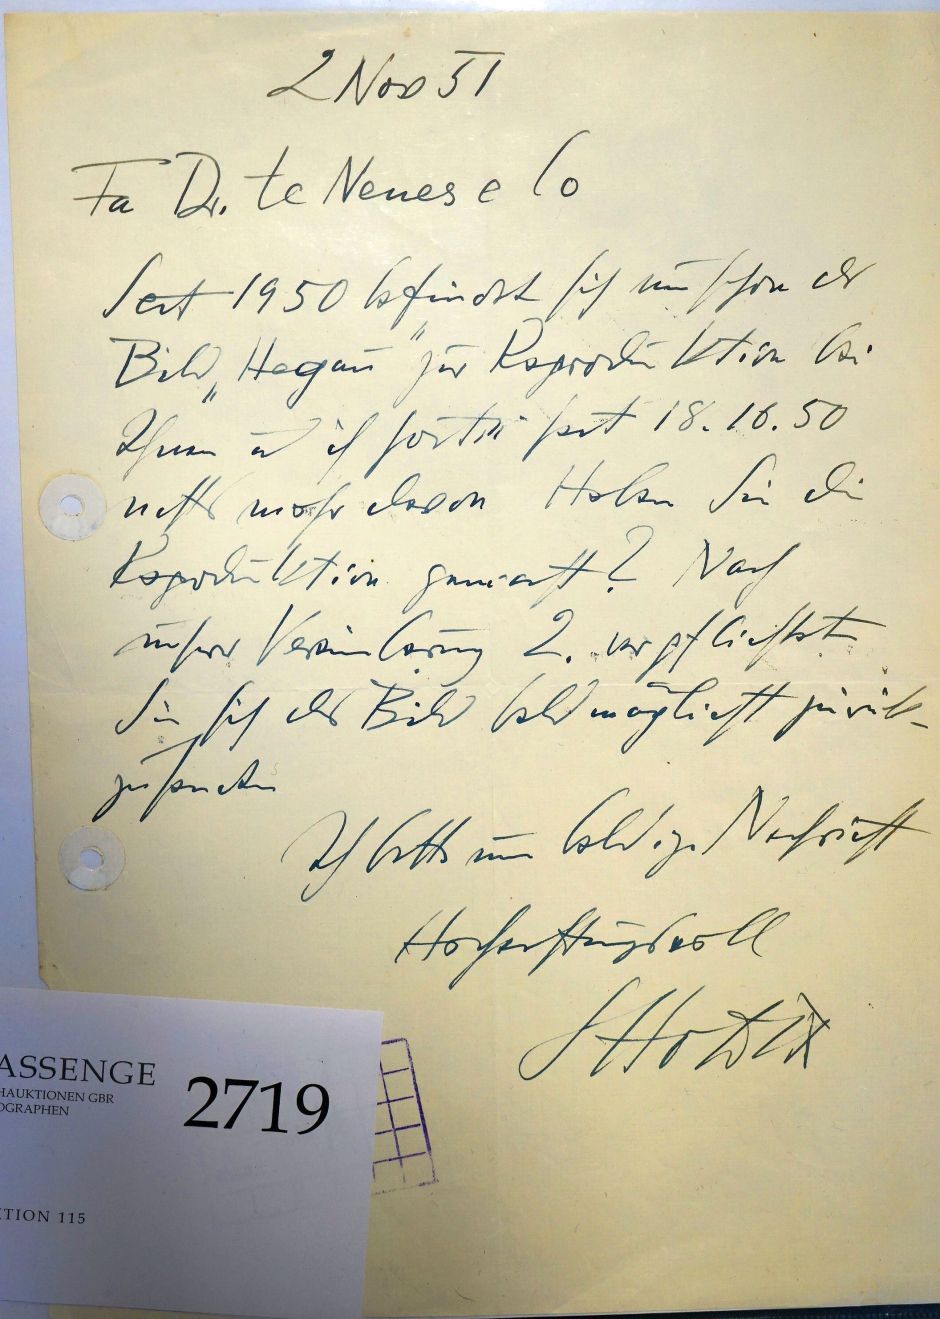 2 Nov 51
Fa Dr. te Neues e Co
Seit 1950 befindet sich nun schon das
Bild „Hegau" zur Reproduktion bei
Ihnen u ich hörte seit 18.10.50
nichts mehr davon Haben Sie die
Reproduktion gemacht? Nach
unsrer Vereinbarung 2. verpflichtet
Sie sich das Bild baldmöglichst zurück-
zusenden
Ich bitte um baldige Nachricht
Hochachtungsvoll
ASSENGE
HAUKTIONEN GBR
OGRAPHEN
2719
TION 115